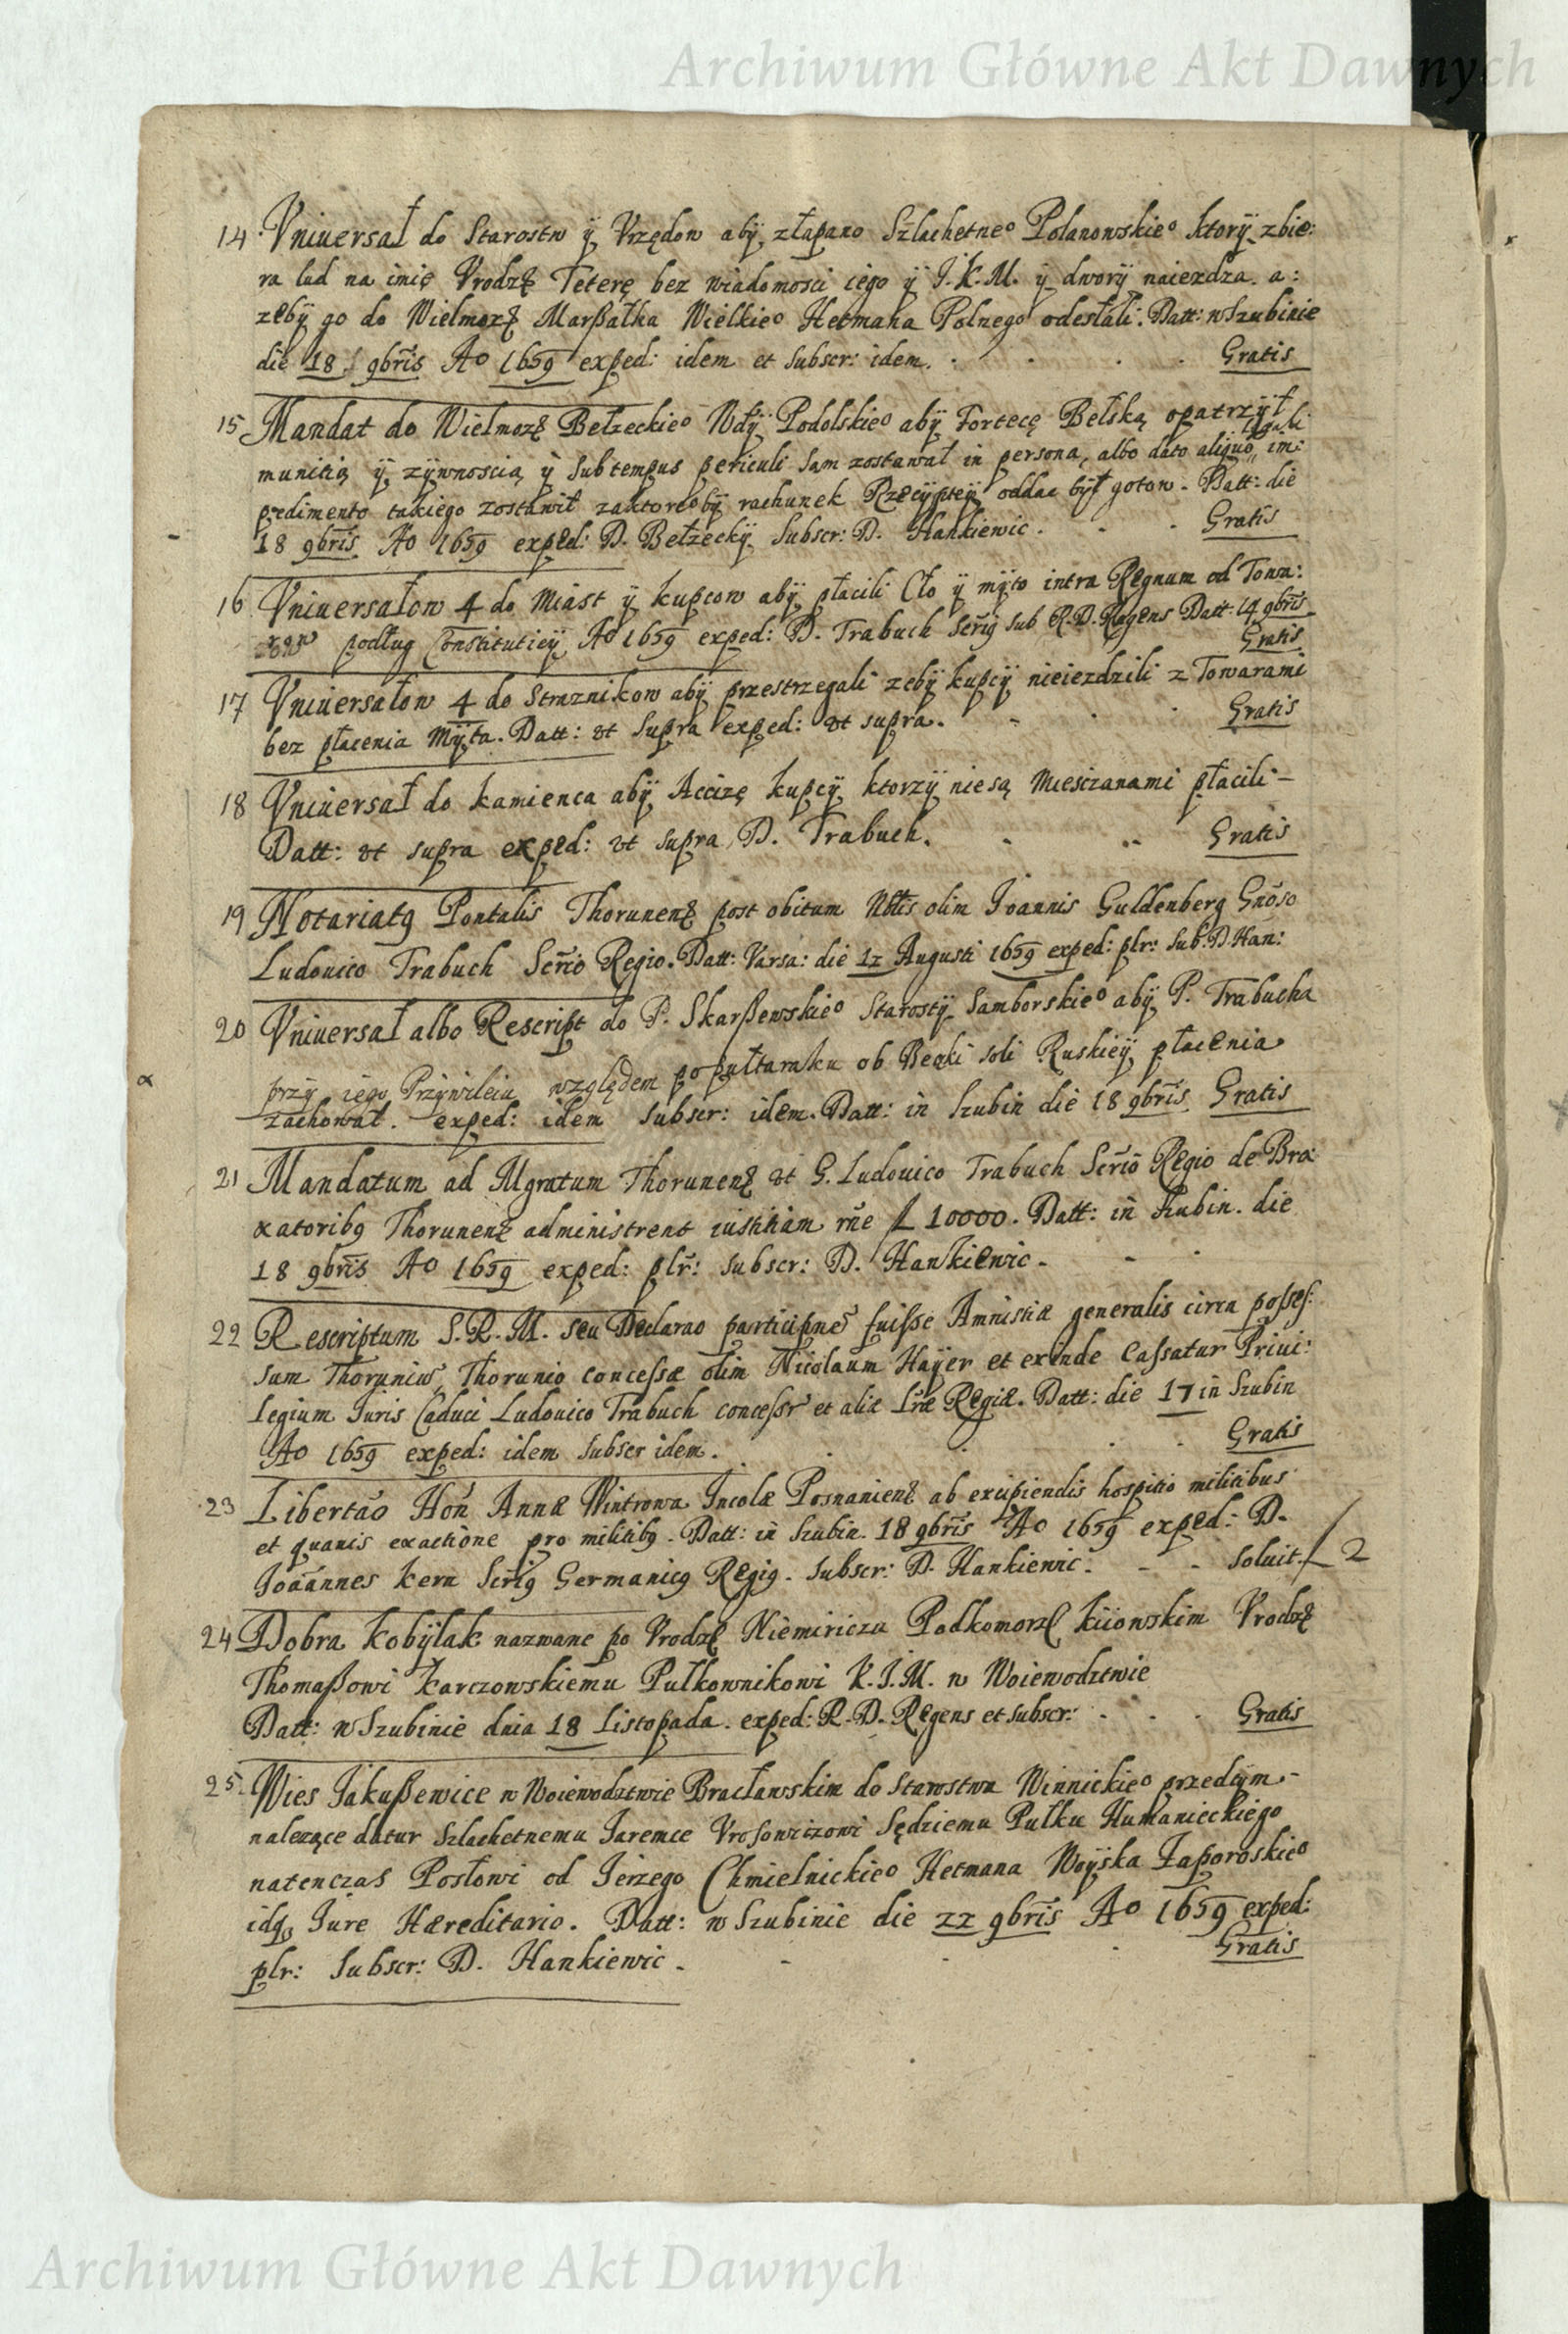 Archiwum Główne Akt Dawnych
14 Vniuersał do Starostw ÿ Vrzędow abÿ złapano Szlachetne° Polanowskie° ktorÿ zbie:
ra lud na imię Vrodzę Teterę bez wiadomosci iego ÿ J.K.M. ÿ dworÿ naiezdza. a:
zebÿ go do Wielmozę Marßałka Wielkie° Hetmana Polnego odesłali. Datt: w Szubinie
die 18 9bris Ao 1659 exped: idem et subscr: idem. Gratis
15 Mandat do Wielmozę Bełzeckie° Wdÿ Podolskie° abÿ Fortecę Belską opatrzÿł
munitią ÿ zÿwnoscią ÿ sub tempus periculi sam zostawał in persona, albo dato aliquo legali im:
pedimento takiego zostawił zaktoregobÿ rachunek Rzecÿpteÿ oddac bÿł gotow. Datt: die
18 9bris Ao 1659 exped: D. Bełzeckÿ Subscr: D. Hankiewic. Gratis
16 Vniuersałow 4 do Miast ÿ kupcow abÿ płacili Cło ÿ mÿto intra Regnum od Towa:
row podług Constituticÿ Ao 1659 exped: D. Trabuch Scrig sub R.D. Regens Datt: 14 9bris
Gratis
17 Vniuersałow 4 do Straznikow abÿ przestrzegali zebÿ kupcÿ nieiezdzili z Towarami
bez płacenia Mÿta. Datt: vt supra exped: vt supra. Gratis
18 Vniuersał do kamienca abÿ Accizę kupcÿ ktorzÿ nie są Miesczanami płacili
Datt: vt supra exped: vt supra D. Trabuch. Gratis
19 Notariatg Pontalis Thorunenę post obitum Nblis olim Joannis Guldenberg Gnoso
Ludouico Trabuch Scrio Regio. Datt: Varsa: die 12 Augusti 1659 exped: plr: sub. D. Han:
20 Vniuersał albo Rescript do P. Skarßewskie° Starostÿ Samborskie° abÿ P. Trabucha
przÿ iego Przÿwileiu względem po pułtaraku ob Beczki soli Ruskieÿ płacenia
zachował. exped: idem subscr: idem. Datt: in Szubin die 18 9bris Gratis
21 Mandatum ad Mgratum Thorunenę vt G. Ludouico Trabuch Scrio Regio de Bra
xatoribg Thorunenę administrent iustitiam rne f 10000. Datt: in Szubin. die
18 9bris Ao 1659 exped: plr: subscr: D. Hankiewic.
22 Rescriptum S.R.M. seu Declarao participne fuisse Amnistiæ generalis circa posses:
sum Thorunio concessæ olim Nicolaum Haÿer et exinde Cassatur Priui:
legium Juris Caduci Ludouico Trabuch concessr et aliæ Lræ Regiæ. Datt: die 17 in Szubin
Ao 1659 exped: idem subscr idem. Gratis
23 Libertao Hon Annæ Wintrowa Incolæ Posnanienę ab excipiendis hospitio militibus
et quauis exactione pro militibg. Datt: in Szubin. 18 9bris Ao 1659 exped: D.
Joannes Kern Scrig Germanicg Regig. Subscr: D. Hankiewic. soluit f 2
24 Dobra Kobÿlak nazwane po Vrodzę Niemiriczu Podkomorzę kiiowskim Vrodzę
Thomaßowi Karczowskiemu Pułkownikowi K.J.M. w Woiewodztwie
Datt: w Szubinie dnia 18 Listopada. exped: R.D. Regens et subscr: Gratis
25. Wies Jakußewice w Woiewodztwie Bracławskim do Starostwa Winnickie° przedtÿm
nalezące datur Szlachetnemu Jaremce Vrosowiczowi Sędziemu Pułku Humanieckiego
natenczas Posłowi od Jerzego Chmielnickie° Hetmana Woÿska Zaporoskie°
idq Jure Hæreditario. Datt: w Szubinie die 22 9bris Ao 1659 exped:
plr: Subscr: D. Hankiewic. Gratis
Archiwum Główne Akt Dawnych